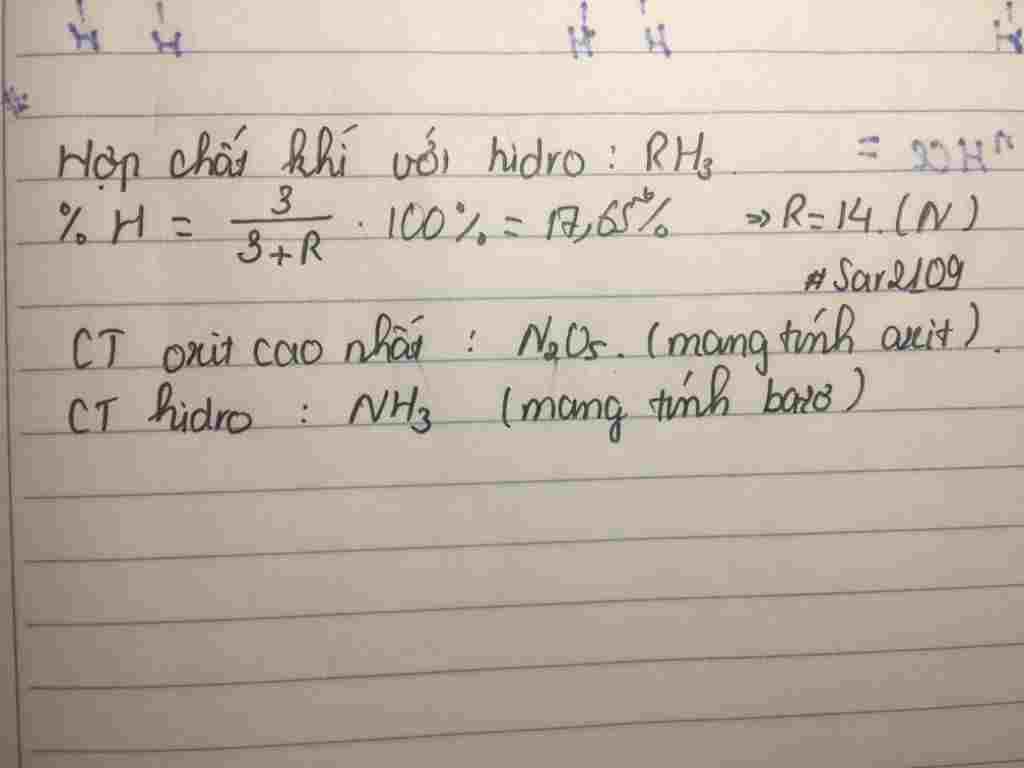 H H H H H
Hợp chất khí với hidro : RH₃.
% H = 3/(3+R) · 100% = 17,65% => R = 14. (N)
#Sar2109
CT oxit cao nhất : N₂O₅. (mang tính axit).
CT hidro : NH₃ (mang tính bazơ)